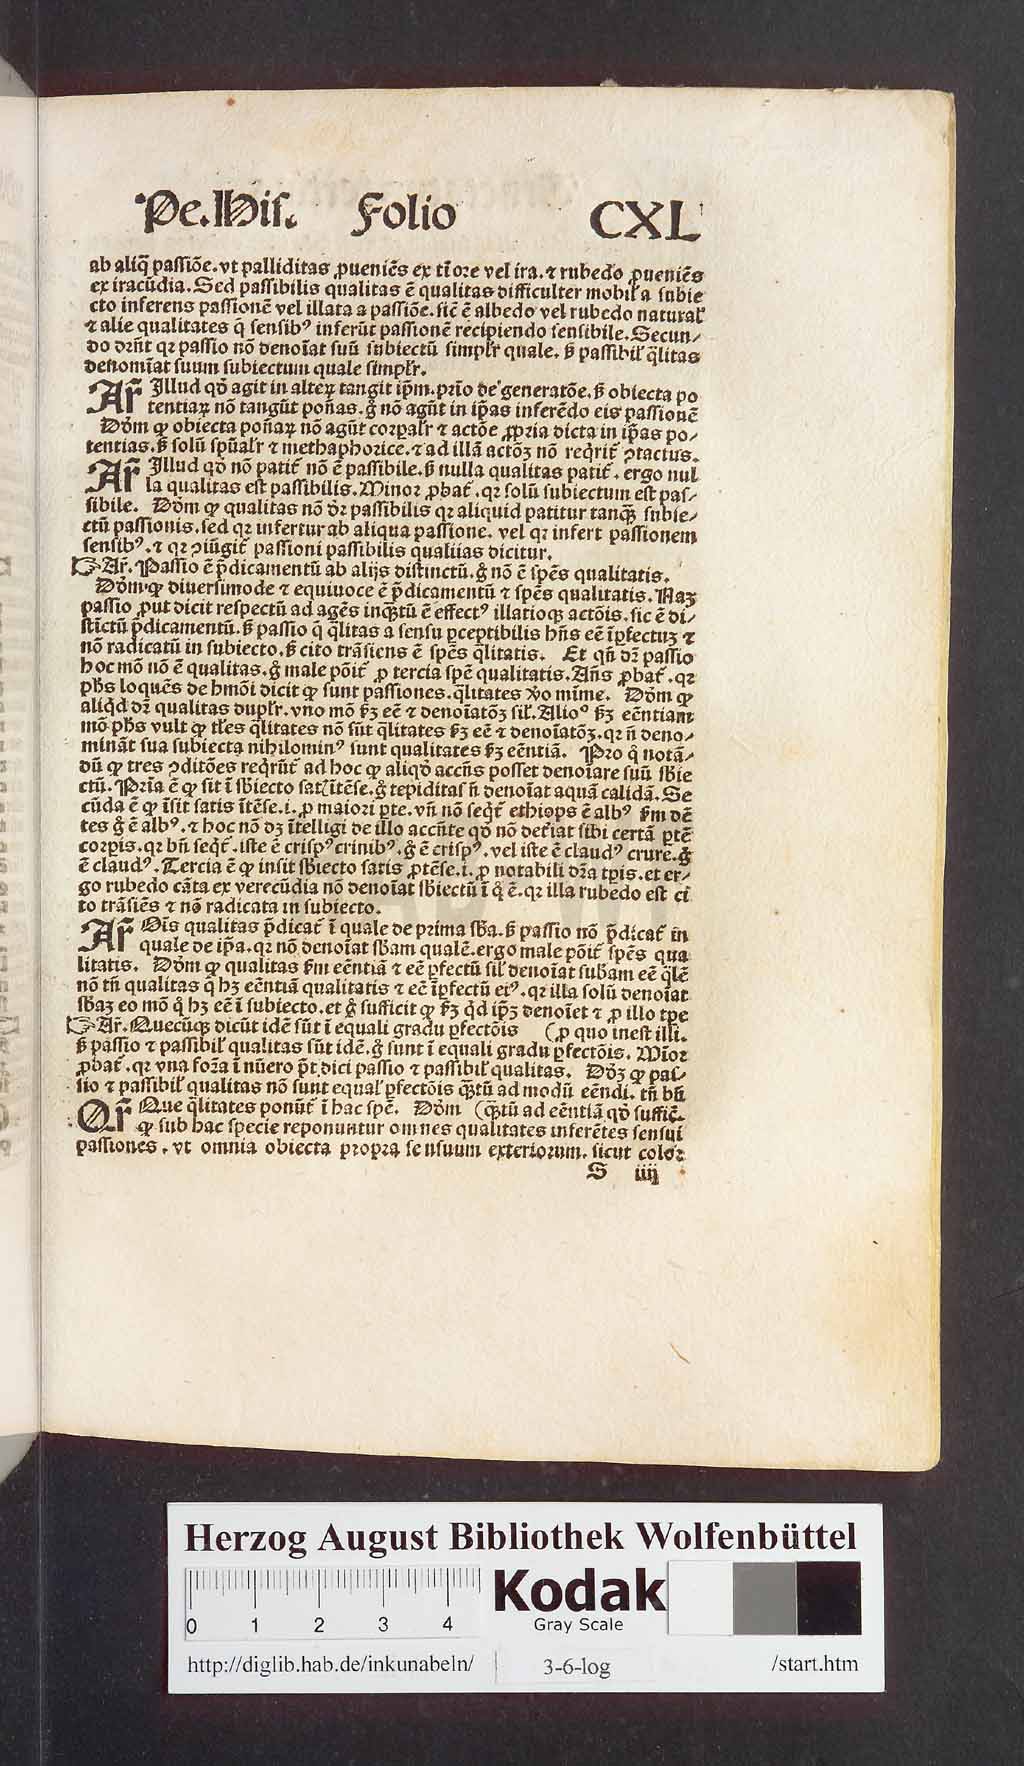 Pe. His. Folio CXL
ab aliq̄ passiōe. vt palliditas ꝓueniēs ex tīore vel ira. ⁊ rubedo ꝓueniēs
ex iracūdia. Sed passibilis qualitas ē qualitas difficulter mobil' a subie
cto inferens passionē vel illata a passiōe. sic̄ ē albedo vel rubedo natural'
⁊ alie qualitates q̄ sensibꝰ inferūt passionē recipiendo sensibile. Secun⸗
do dr̄nt qꝛ passio nō denoīat suū subiectū simplr̄ quale. ß passibil' q̄litas
denomīat suum subiectum quale simplr̄.
Ar̄ Illud qd̄ agit in alteꝝ tangit ip̄m. prīo de generatōe. ß obiecta po
tentiaꝝ nō tangūt poñas. g̊ nō agūt in ip̄as inferēdo eis passionē
Dōm ꝙ obiecta poñaꝝ nō agūt corꝑalr̄ ⁊ actōe ꝓpria dicta in ip̄as po⸗
tentias. ß solū spūalr̄ ⁊ methaphorice. ⁊ ad illā actōꝫ nō reqrit̄ ꝯtactus.
Ar̄ Illud qd̄ nō patit̄ nō ē passibile. ß nulla qualitas patit̄. ergo nul
la qualitas est passibilis. Minor ꝓbat̄. qꝛ solū subiectum est pas⸗
sibile. Dōm ꝙ qualitas nō dr̄ passibilis qꝛ aliquid patitur tanqꝫ subie⸗
ctū passionis. sed qꝛ infertur ab aliqua passione. vel qꝛ infert passionem
sensibꝰ. ⁊ qꝛ ꝯiūgit̄ passioni passibilis qualiias dicitur.
☞ Ar̄. Passio ē p̄dicamentū ab alijs distinctū. g̊ nō ē spēs qualitatis.
Dōm ꝙ diuersimode ⁊ equiuoce ē p̄dicamentū ⁊ spēs qualitatis. Naꝫ
passio ꝓut dicit respectū ad agēs inqꝫtū ē effectꝰ illatioqꝫ actōis. sic ē di⸗
stīctū p̄dicamentū. ß passio q̄ q̄litas a sensu ꝑceptibilis hñs eē īꝑfectuꝫ ⁊
nō radicatū in subiecto. ß cito trāsiens ē spēs q̄litatis. Et qñ dr̄ passio
hoc mō nō ē qualitas. g̊ male pōit̄ ꝓ tercia spē qualitatis. Añs ꝓbat̄. qꝛ
phs loquēs de hmōi dicit ꝙ sunt passiones. q̄litates v̊o mīme. Dōm ꝙ
aliqd dr̄ qualitas duplr̄. vno mō ßꝫ eē ⁊ denoīatōꝫ sil'. Alioº ßꝫ eēntiam
mō phs vult ꝙ tles q̄litates nō sūt q̄litates ßꝫ eē ⁊ denoīatōꝫ. qꝛ ñ deno⸗
minānt sua subiecta nihilominꝰ sunt qualitates ßꝫ eēntiā. Pro q̊ notā⸗
dū ꝙ tres ꝯditōes reqrūt̄ ad hoc ꝙ aliqd̄ accñs posset denoīare suū sb̄ie
ctū. Prīa ē ꝙ sit ī sb̄iecto satꝭ ītēse. g̊ tepiditas ñ denoīat aquā calidā. Se
cūda ē ꝙ īsit satis ītēse. i. ꝓ maiori ꝑte. vñ nō seqt̄ ethiops ē albꝰ ßm dē
tes g̊ ē albꝰ. ⁊ hoc nō dꝫ ītelligi de illo accñte qd̄ nō det̄iat sibi certā ꝑtē
corꝑis. qꝛ bñ seqt̄. iste ē crispꝰ crinibꝰ. g̊ ē crispꝰ. vel iste ē claudꝰ crure. g̊
ē claudꝰ. Tercia ē ꝙ insit sb̄iecto satis ꝓtēse. i. ꝓ notabili dr̄a tp̄is. et er⸗
go rubedo cāta ex verecūdia nō denoīat sb̄iectū ī q̊ ē. qꝛ illa rubedo est ci
to trāsiēs ⁊ nō radicata in subiecto.
Ar̄ Oīs qualitas p̄dicat̄ ī quale de prima sb̄a. ß passio nō p̄dicat̄ in
quale de ip̄a. qꝛ nō denoīat sb̄am qualē. ergo male pōit̄ spēs qua
litatis. Dōm ꝙ qualitas ßm eēntiā ⁊ eē ꝑfectū sil' denoīat sub̄am eē q̄lē
nō tñ qualitas q̄ hꝫ eēntiā qualitatis ⁊ eē īꝑfectū eiꝰ. qꝛ illa solū denoīat
sb̄aꝫ eo mō q̊ hꝫ eē ī subiecto. et g̊ sufficit ꝙ ßꝫ qd ip̄ꝫ denoīet ⁊ ꝓ illo tp̄e
☞ Ar̄. Quecūqꝫ dicūt idē sūt ī equali gradu ꝑfectōis (ꝓ quo inest illi.
ß passio ⁊ passibil' qualitas sūt idē. g̊ sunt ī equali gradu ꝑfectōis. Mīor
ꝓbat̄. qꝛ vna foꝛa ī nūero p̄t dici passio ⁊ passibil' qualitas. Dōꝫ ꝙ pas⸗
sio ⁊ passibil' qualitas nō sunt equal' ꝑfectōis qꝫtū ad modū eēndi. tñ bñ
Qr̄ Que q̄litates ponūt̄ ī hac spē. Dōm (qꝫtū ad eēntiā qd̄ suffic̄.
ꝙ sub hac specie reponuntur omnes qualitates inferētes sensui
passiones. vt omnia obiecta propra sensuum exteriorum. sicut color
S iiij
Herzog August Bibliothek Wolfenbüttel
0 1 2 3 4
Kodak
Gray Scale
http://diglib.hab.de/inkunabeln/ 3-6-log /start.htm